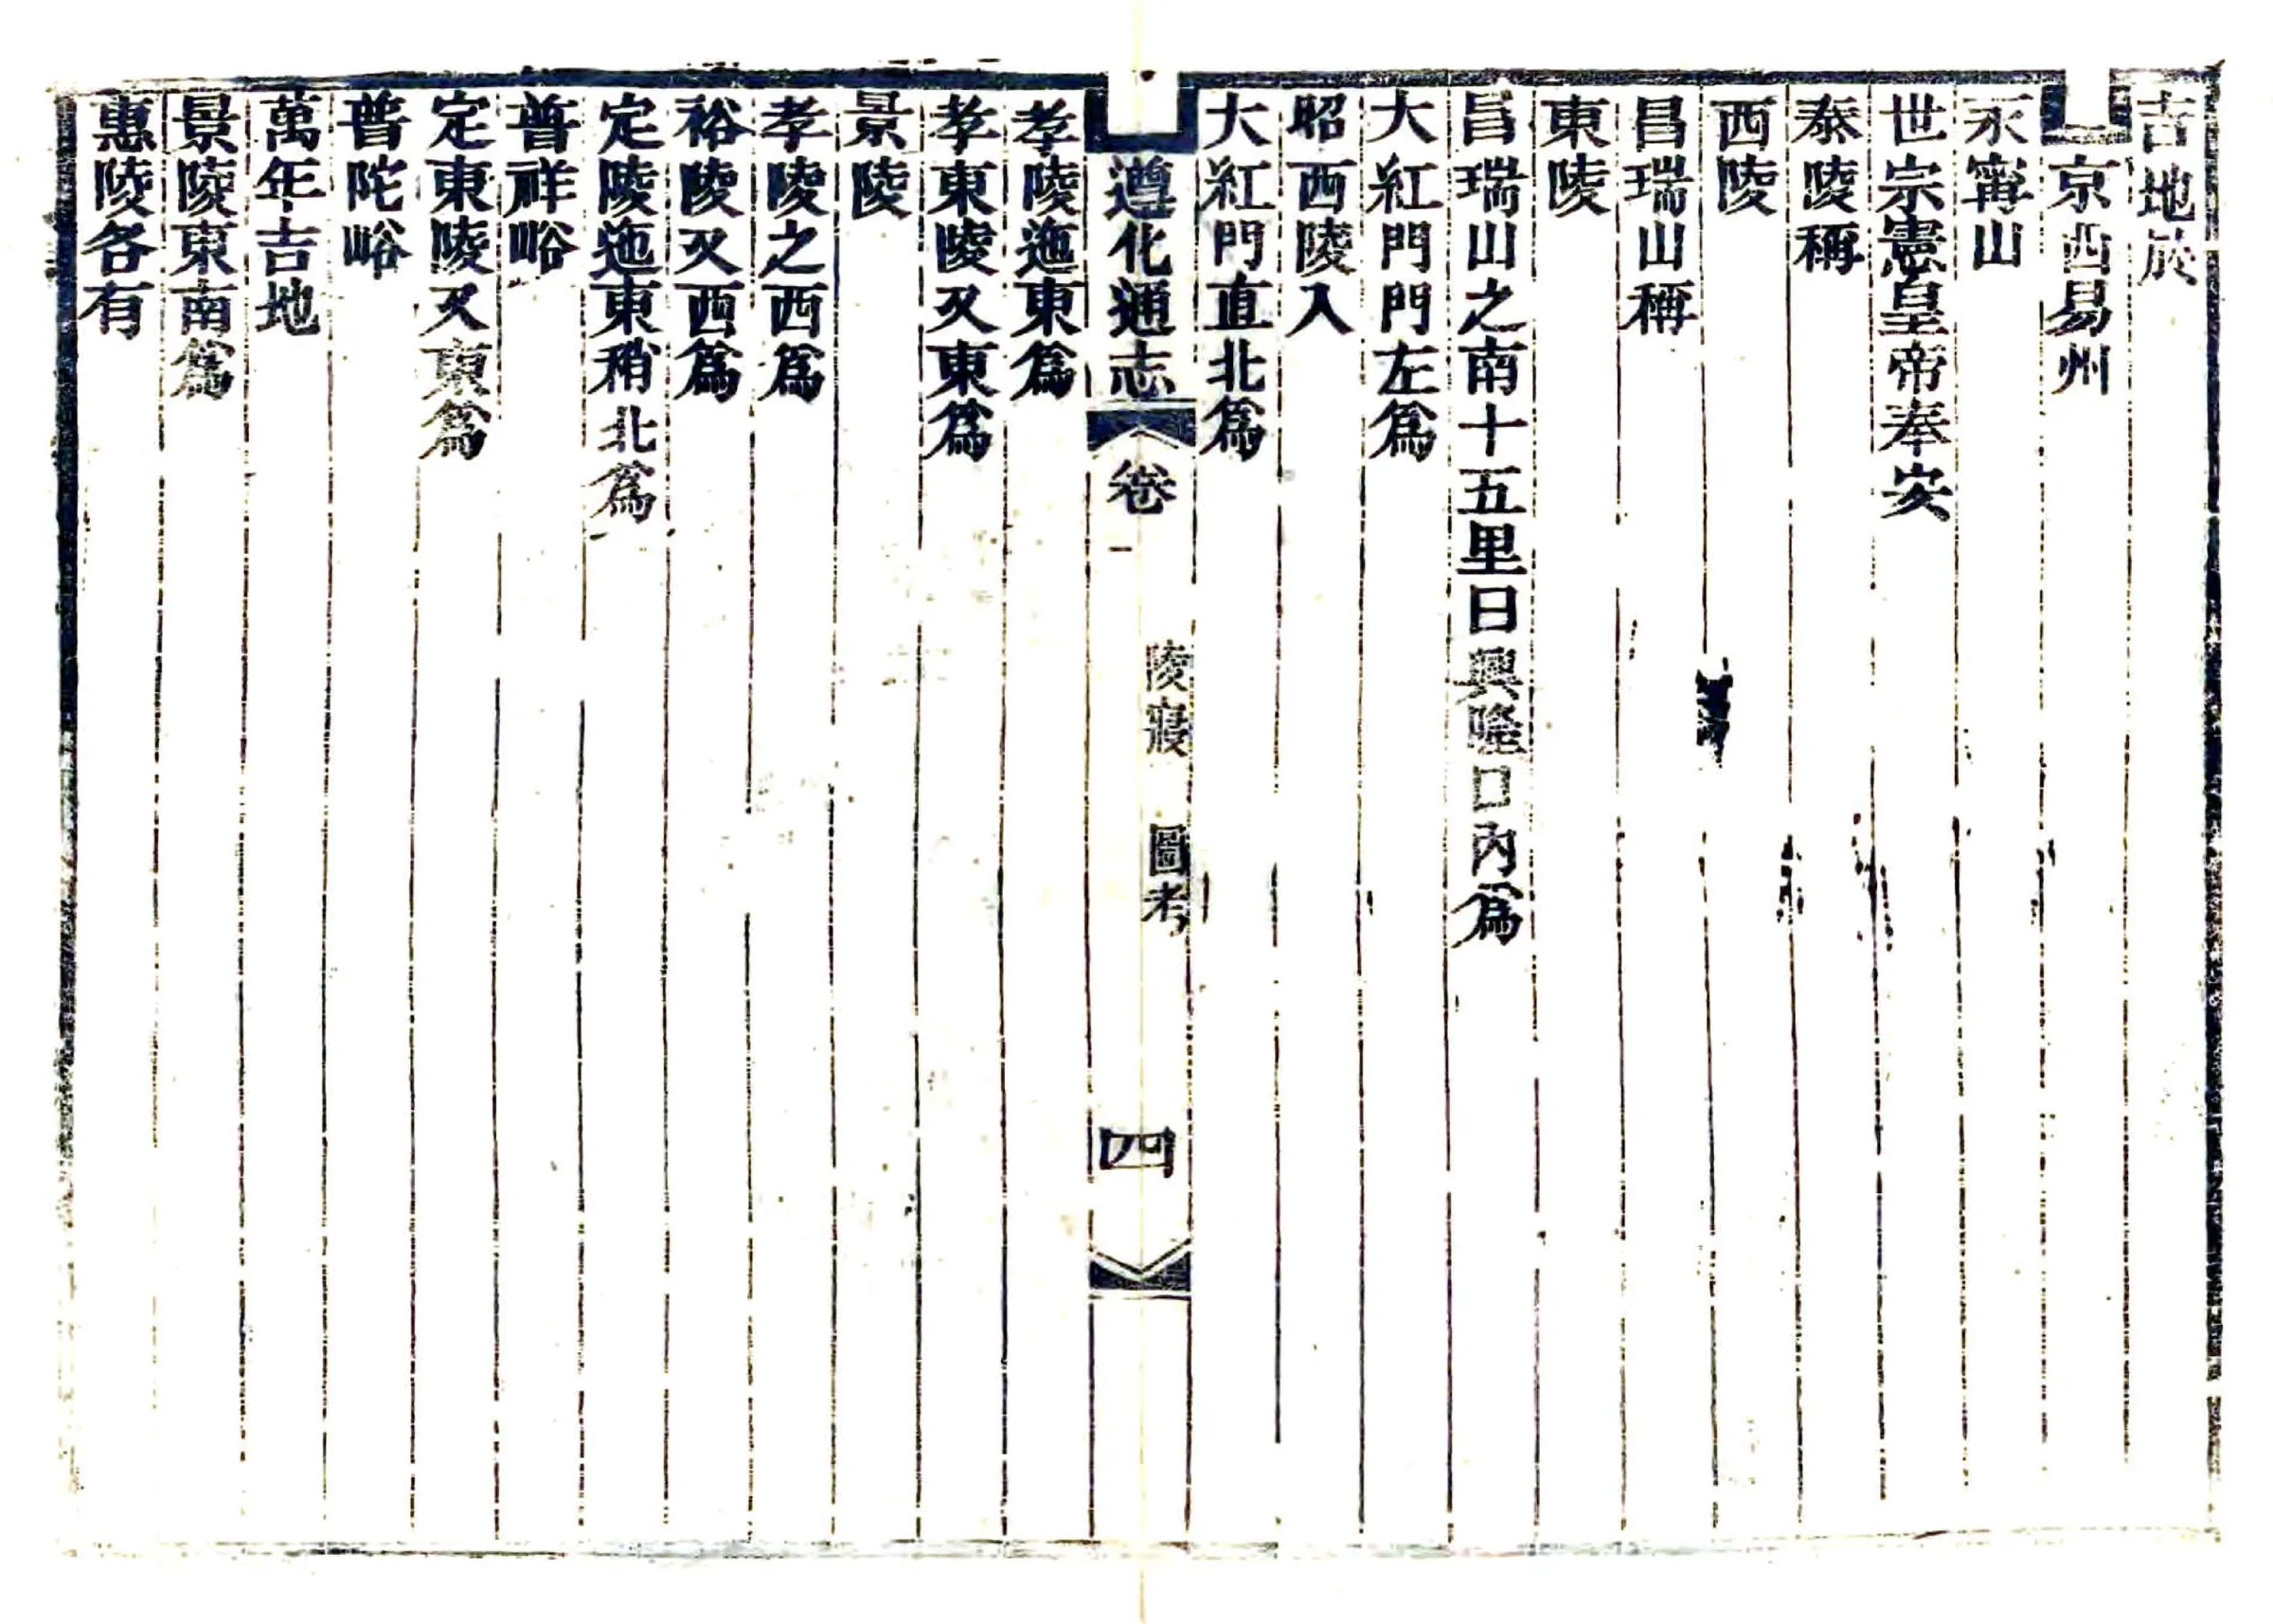 吉地於
京西易州
永甯山
世宗憲皇帝奉安
泰陵稱
西陵
昌瑞山稱
東陵
昌瑞山之南十五里曰興隆口內為
大紅門門左為
昭西陵入
大紅門直北為
遵化通志 卷一 陵寢 圖考 四
孝陵迤東為
孝東陵又東為
景陵
孝陵之西為
裕陵又西為
定陵迤東稍北為
普祥峪
定東陵又東為
普陀峪
萬年吉地
景陵東南為
惠陵各有